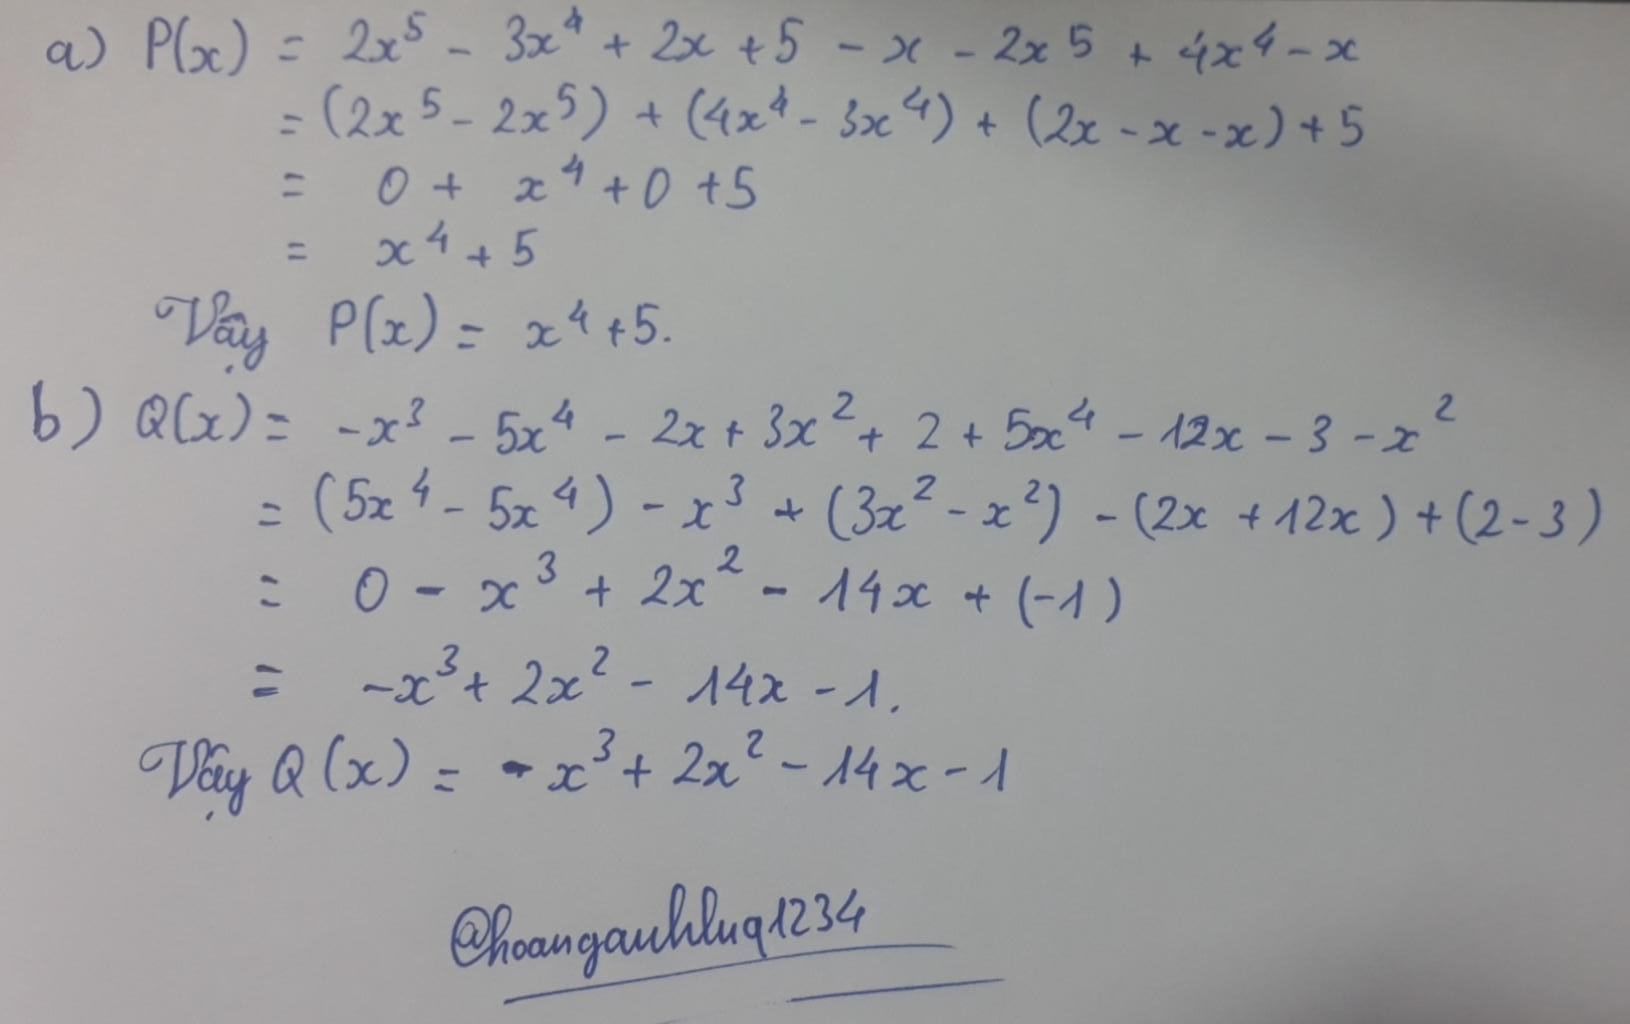 a) P(x) = 2x⁵ - 3x⁴ + 2x + 5 - x - 2x⁵ + 4x⁴ - x
= (2x⁵ - 2x⁵) + (4x⁴ - 3x⁴) + (2x - x - x) + 5
= 0 + x⁴ + 0 + 5
= x⁴ + 5
Vậy P(x) = x⁴ + 5.
b) Q(x) = -x³ - 5x⁴ - 2x + 3x² + 2 + 5x⁴ - 12x - 3 - x²
= (5x⁴ - 5x⁴) - x³ + (3x² - x²) - (2x + 12x) + (2 - 3)
= 0 - x³ + 2x² - 14x + (-1)
= -x³ + 2x² - 14x - 1.
Vậy Q(x) = -x³ + 2x² - 14x - 1